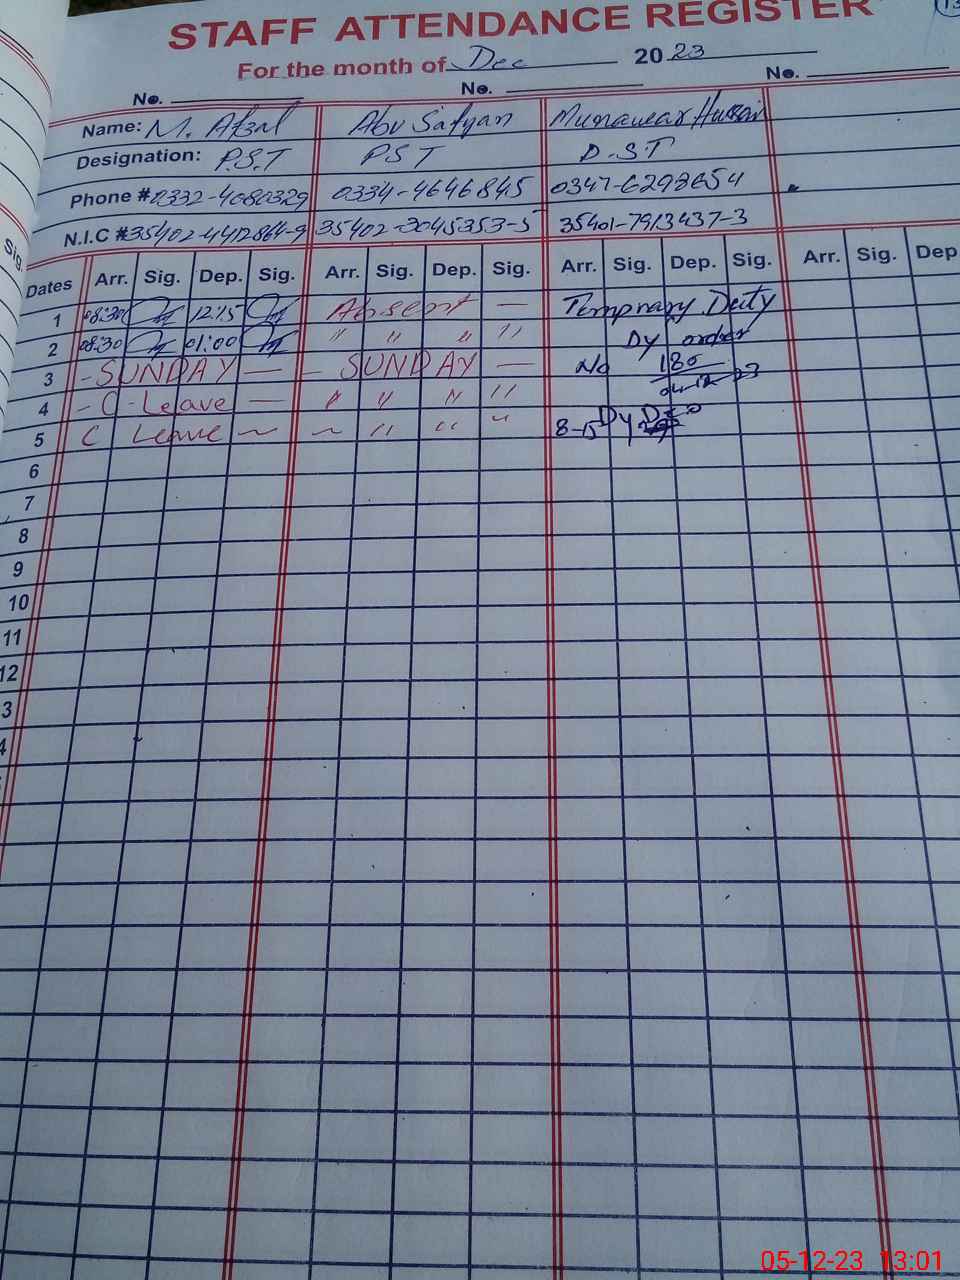 13
STAFF ATTENDANCE REGISTER
For the month of Dec 2023
No. No. No.
Name: M. Afzal Abu Safyan Munawar Hussain
Designation: P.S.T PST D.S.T
Phone #0332-4080329 0334-4646845 0347-6298654
N.I.C #35402-4412864-9 35402-3045353-5 35401-7913437-3
Sig.
Dates Arr. Sig. Dep. Sig. Arr. Sig. Dep. Sig. Arr. Sig. Dep. Sig. Arr. Sig. Dep
1 08:30 12:15 Absent — Temprary Duty
2 08:30 01:00 " " " " Dy order
3 - SUNDAY — - SUNDAY — No 180
04-12-23
4 - C - Leave — " " " "
5 C Leave ~ ~ " " " 8-15
6
7
8
9
10
11
12
3
4
05-12-23 13:01